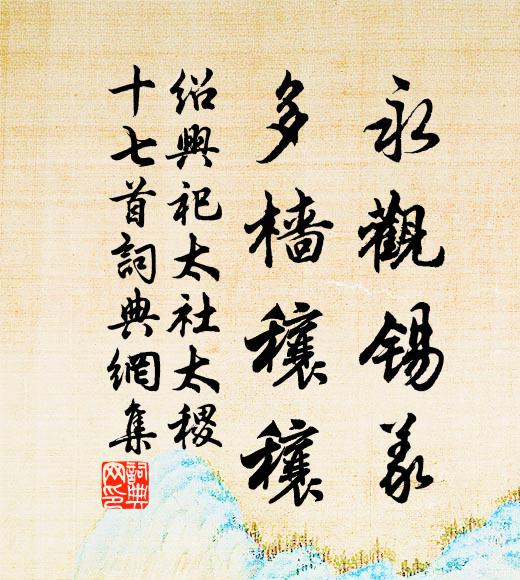 永觀錫羨
多檣穰穰
紹興祀太社太稷
十七首詞典網集
詞典
网印